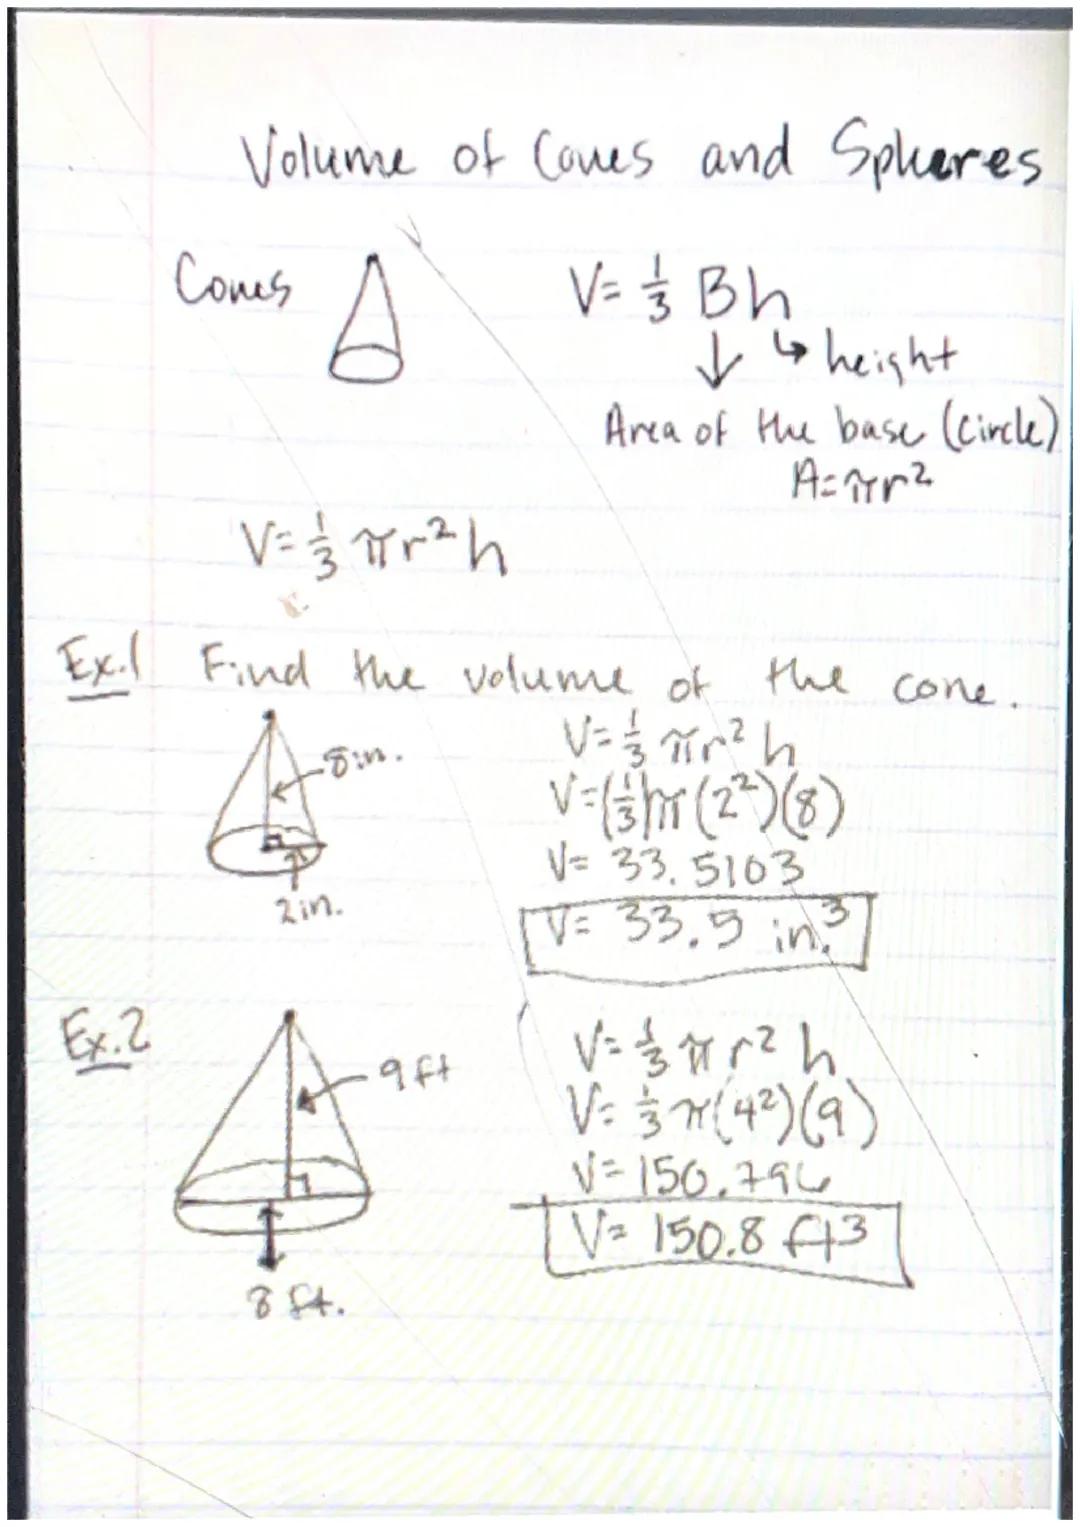 Volume of Cones and Spheres
Cones V = 1/3 Bh
↓ ↳ height
Area of the base (circle)
A = πr²
V = 1/3 πr²h
Ex.1 Find the volume of the cone.
V = 1/3 πr²h
8in.
V = (1/3)π(2²)(8)
V = 33.5103
2in.
V = 33.5 in.³
Ex.2
V = 1/3 πr²h
9ft
V = 1/3 π(4²)(9)
V = 150.796
V = 150.8 ft3
8 ft.